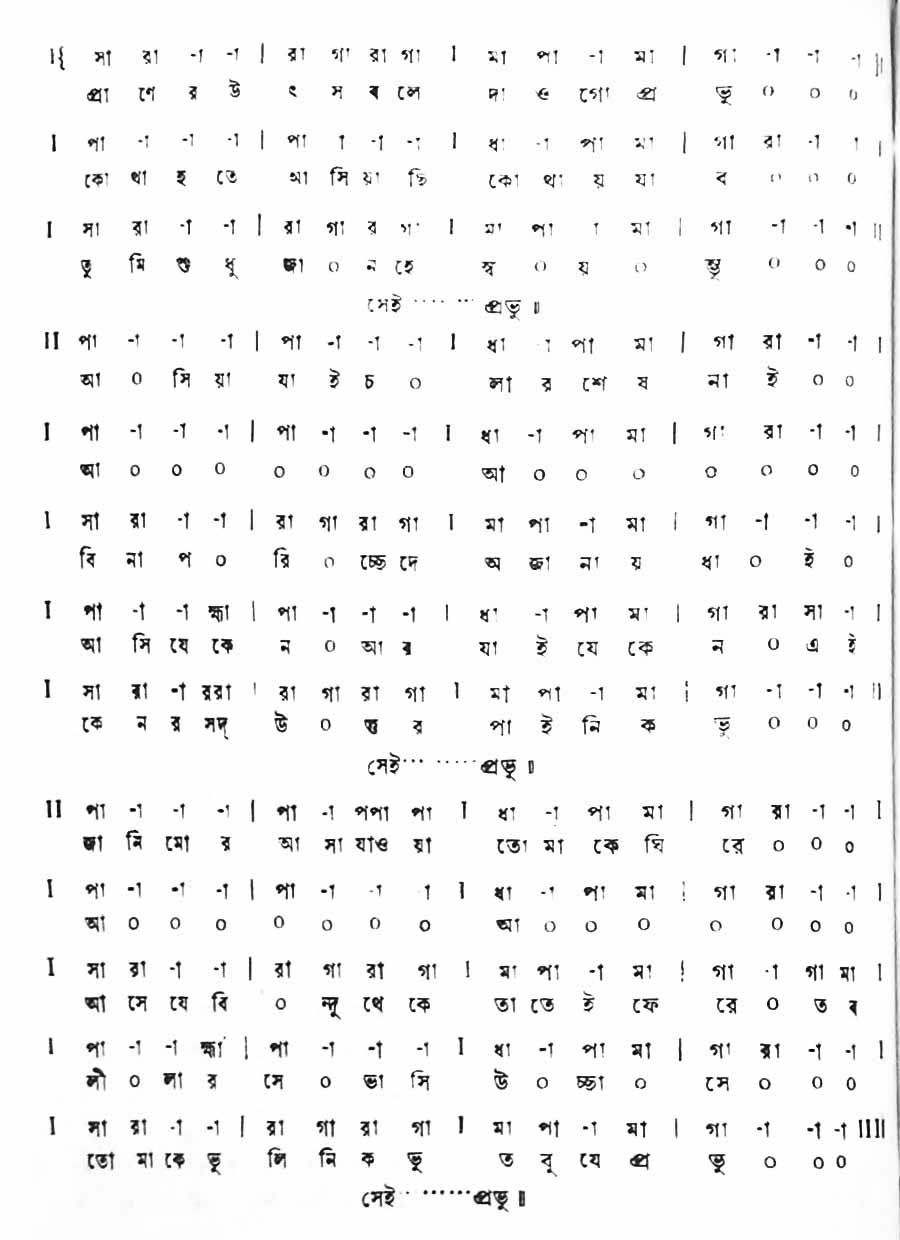 I{ সা রা -া -া | রা গা রা গা I মা পা -া মা | গা -া -া -া }I
প্রা ণে র উ ৎ স ৰ লে দা ও গো প্র ভু ০ ০ ০
I পা -া -া -া | পা া -া -া I ধা -া পা মা | গা রা -া া |
কো থা হ তে আ সি য়া ছি কো থা য় যা ব ০ ০ ০
I সা রা -া -া | রা গা র গা I মা পা া মা | গা -া -া -া II
তু মি শু ধু জ্ঞা ০ ন হে স্ব ০ য় ০ ম্ভূ ০ ০ ০
সেই ···· ··· প্রভু ॥
II পা -া -া -া | পা -া -া -া I ধা া পা মা | গা রা -া -া |
আ ০ সি য়া যা ই চ ০ লা র শে ষ না ই ০ ০
I পা -া -া -া | পা -া -া -া I ধা -া পা মা | গা রা -া -া |
আ ০ ০ ০ ০ ০ ০ ০ আ ০ ০ ০ ০ ০ ০ ০
I সা রা -া -া | রা গা রা গা I মা পা -া মা | গা -া -া -া |
বি না প ০ রি ০ চ্ছে দে অ জ্ঞা না য় ধা ০ ই ০
I পা -া -া হ্মা | পা -া -া -া I ধা -া পা মা | গা রা সা -া |
আ সি যে কে ন ০ আ ৰ যা ই যে কে ন ০ এ ই
I সা রা -া ররা | রা গা রা গা I মা পা -া মা | গা -া -া -া II
কে ন র সদ্ উ ০ ত্ত র পা ই নি ক ভু ০ ০ ০
সেই··· ·····প্রভু ॥
II পা -া -া -া | পা -া পপা পা I ধা -া পা মা | গা রা -া -া I
জা নি মো র আ সা যাও য়া তো মা কে ঘি রে ০ ০ ০
I পা -া -া -া | পা -া -া া I ধা -া পা মা | গা রা -া -া |
আ ০ ০ ০ ০ ০ ০ ০ আ ০ ০ ০ ০ ০ ০ ০
I সা রা -া -া | রা গা রা গা I মা পা -া মা | গা -া গা মা |
আ সে যে বি ০ ন্দু থে কে তা তে ই ফে রে ০ ত ৰ
I পা -া -া হ্মা | পা -া -া -া I ধা -া পা মা | গা রা -া -া I
লী ০ লা র সে ০ ভা সি উ ০ চ্ছা ০ সে ০ ০ ০
I সা রা -া -া | রা গা রা গা I মা পা -া মা | গা -া -া -া IIII
তো মা কে ভু লি নি ক ভু ত বু যে প্র ভু ০ ০ ০
সেই·· ······প্রভু ॥